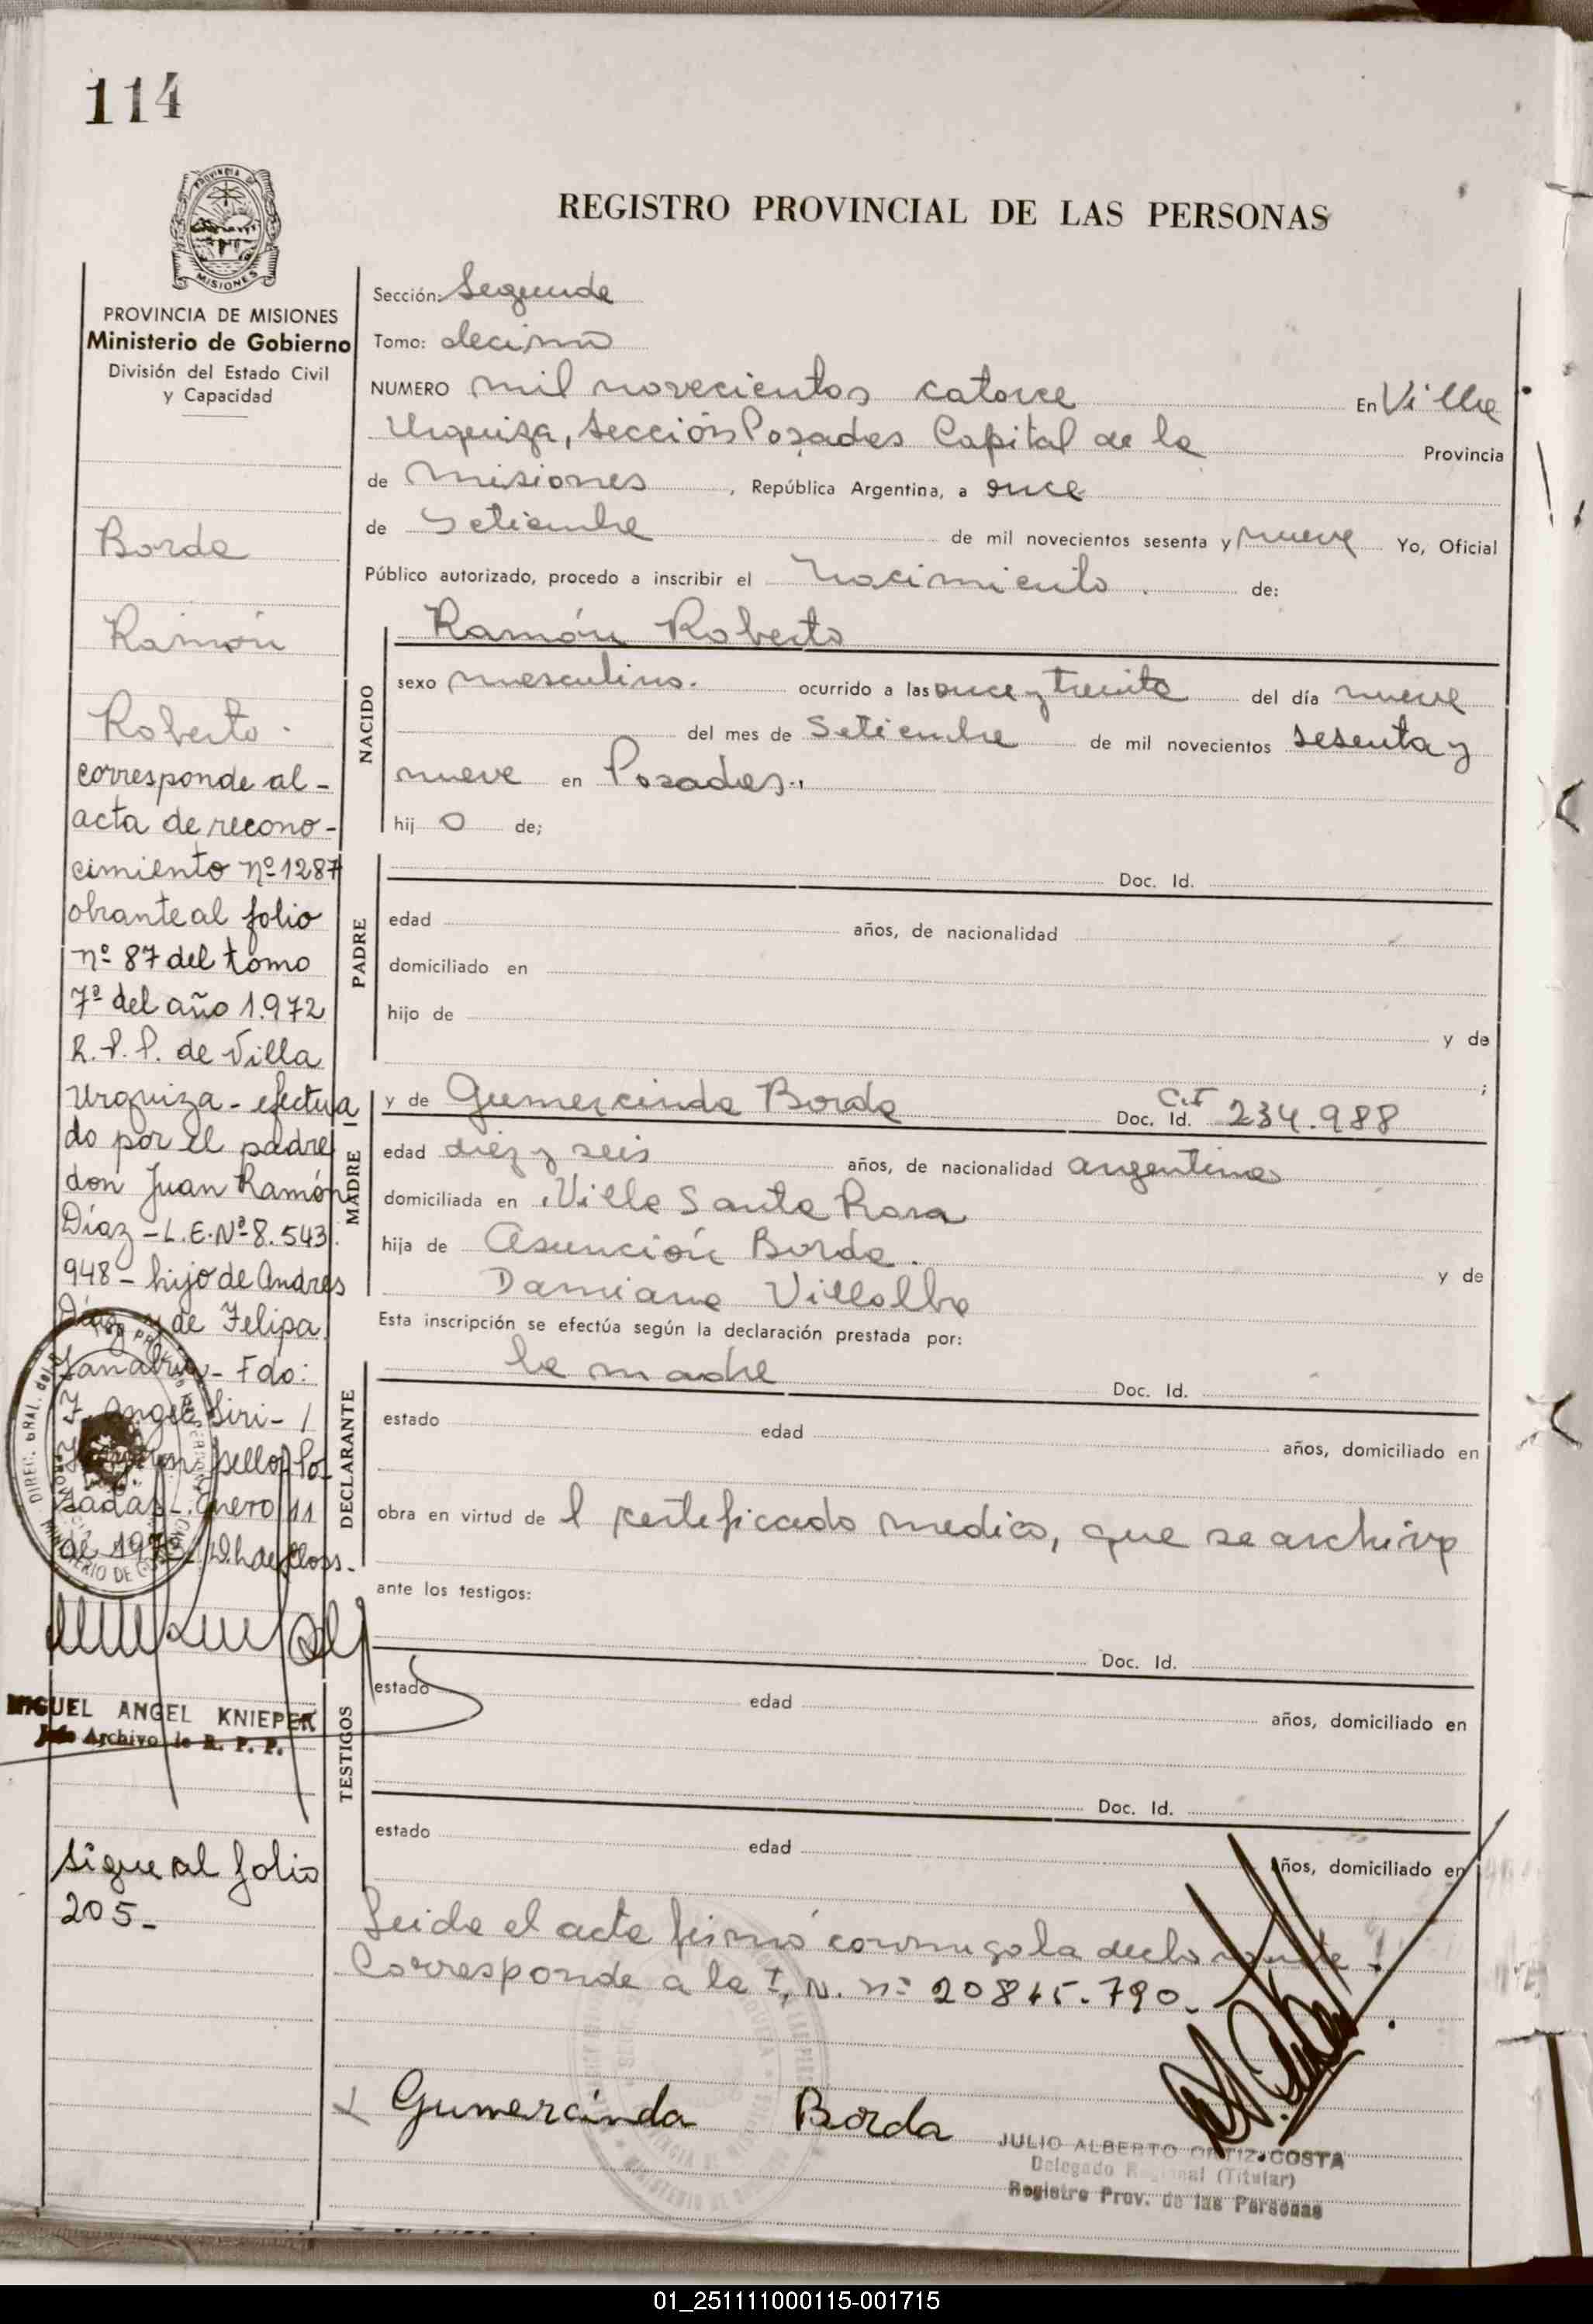 114
PROVINCIA DE
MISIONES
REGISTRO PROVINCIAL DE LAS PERSONAS
PROVINCIA DE MISIONES
Ministerio de Gobierno
División del Estado Civil
y Capacidad
Borda
Ramón
Roberto.
corresponde al-
acta de recono-
cimiento nº 1287
obrante al folio
nº 87 del tomo
7º del año 1.972
R.P.P. de Villa
Urquiza - efectua
do por el padre
don Juan Ramón
Díaz - L.E. Nº 8.543.
948 - hijo de Andres
Díaz y de Felipa
Sanabria - Fdo:
Angel Siri - /
sello Po-
sadas - Enero 11
de 197
MIGUEL ANGEL KNIEPER
Jefe Archivo de R. P. P.
sigue al folio
205-
Sección: Segunda
Tomo: decimo
NUMERO mil novecientos catorce En Villa
Urquiza, Sección Posadas Capital de la Provincia
de Misiones, República Argentina, a once
de Setiembre de mil novecientos sesenta y nueve Yo, Oficial
Público autorizado, procedo a inscribir el nacimiento de:
NACIDO
Ramón Roberto
sexo masculino. ocurrido a las once y treinta del día nueve
del mes de Setiembre de mil novecientos sesenta y
nueve en Posadas.
hij o de;
PADRE
Doc. Id.
edad años, de nacionalidad
domiciliado en
hijo de y de
;
MADRE
y de Gumercinda Borda Doc. Id. C.I 234.988
edad diez y seis años, de nacionalidad argentina
domiciliada en Villa Santa Rosa
hija de Asunción Borda. y de
Damiana Villalba
Esta inscripción se efectúa según la declaración prestada por:
DECLARANTE
la madre Doc. Id.
estado edad años, domiciliado en
obra en virtud de l certificado medico, que se archiva
ante los testigos:
TESTIGOS
Doc. Id.
estado edad años, domiciliado en
Doc. Id.
estado edad años, domiciliado en
Leida el acta firmó conmigo la declarante.
Corresponde a la I. N. nº 20845.790.
Gumercinda Borda
JULIO ALBERTO ORTIZ COSTA
Delegado Regional (Titular)
Registro Prov. de las Personas
01_251111000115-001715